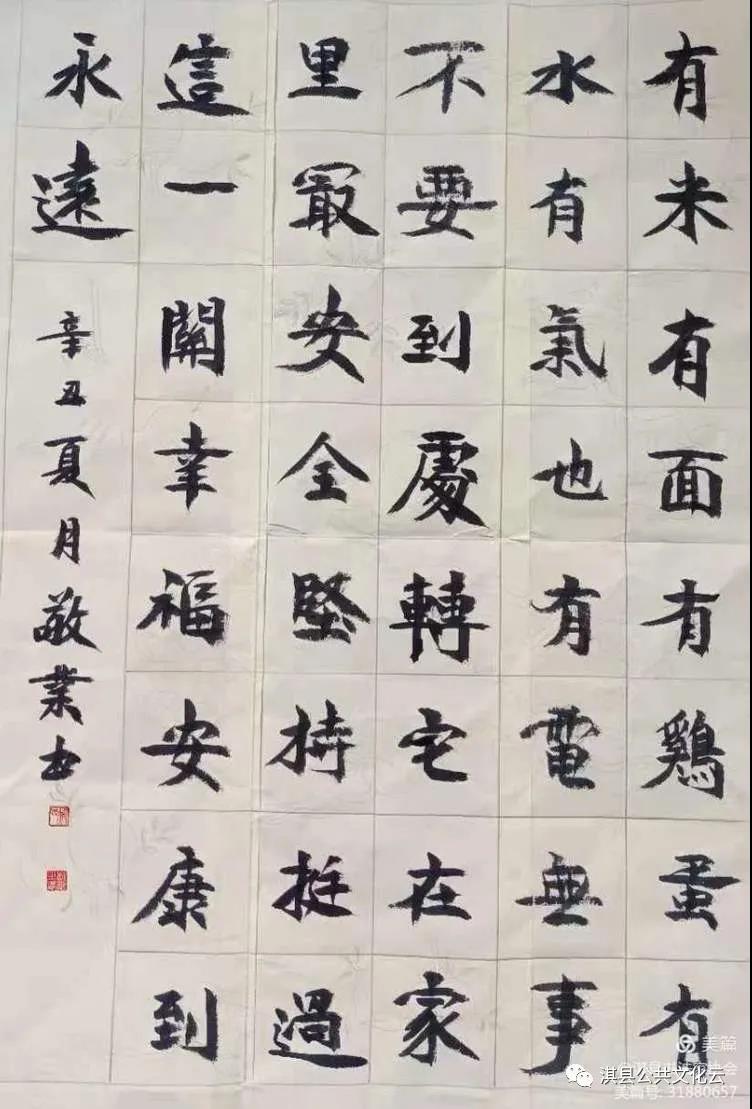 有米有面有鷄蛋有
水有氣也有電無事
不要到處轉宅在家
里最安全堅持挺過
這一關幸福安康到
永遠
辛丑夏月敬業書
美篇
淇县公共文化云
美篇号: 31880657